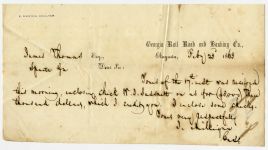 Georgia Rail Road and Banking Co.,
Augusta, Feby 23d 1863
James Thomas Esq.,
Sparta Ga
Dear Sir:
Yours of the 19 inst was received
this morning, inclosing check W. J. on us for $3000, Three
thousand dollars, which I credit you. I inclose some checks.
Yours very respectfully
J. Milligan